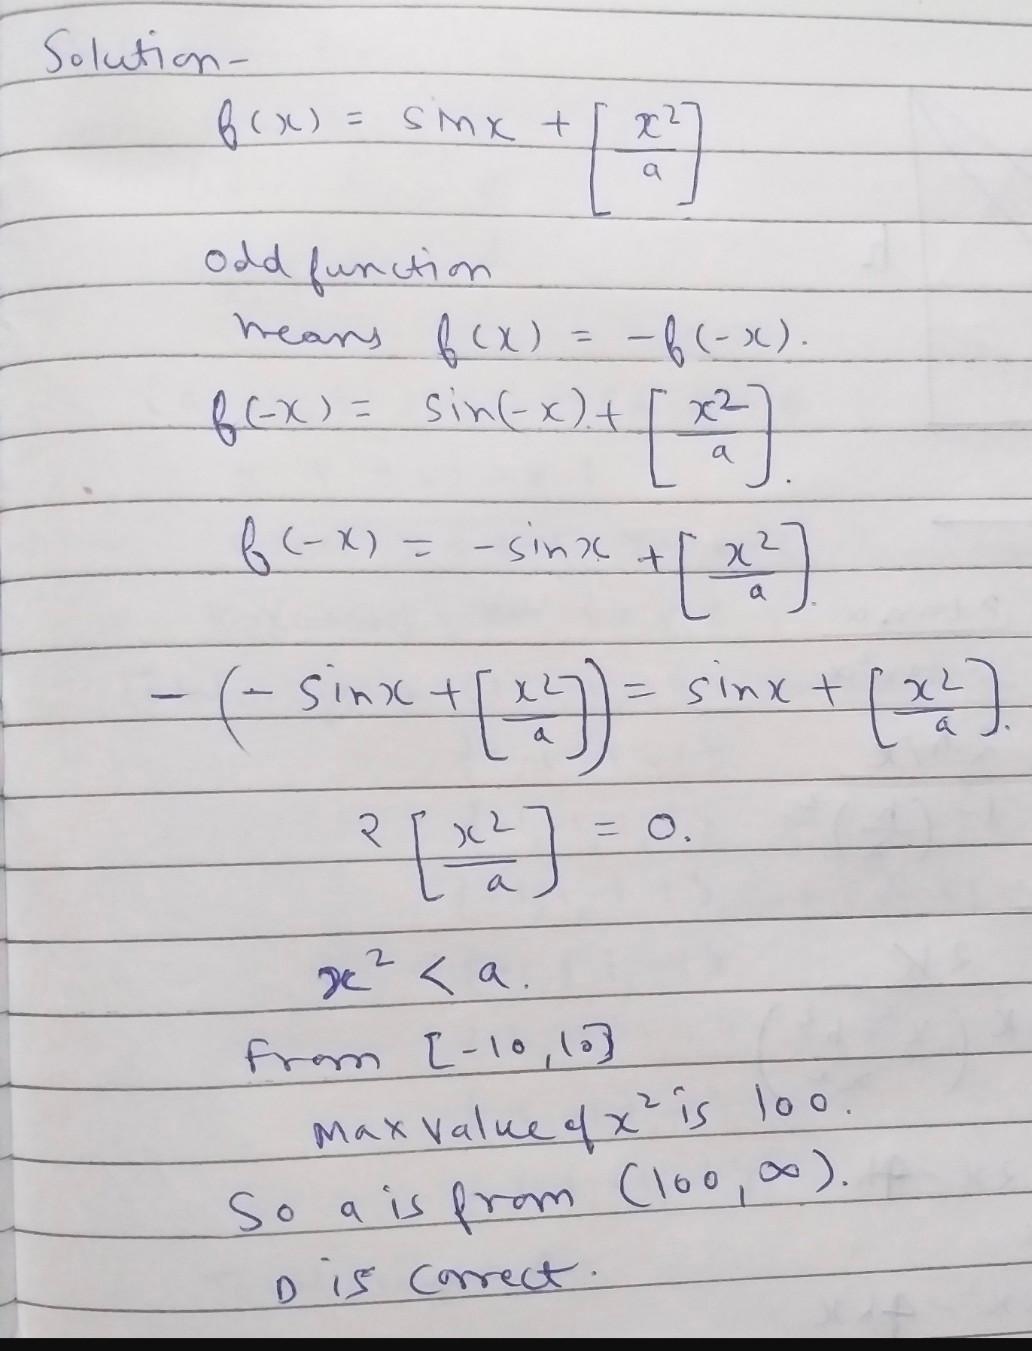 Solution-
f(x) = sinx + [x²/a]
odd function
means f(x) = -f(-x).
f(-x) = sin(-x).+ [x²/a].
f(-x) = -sinx + [x²/a].
- (- sinx + [x²/a]) = sinx + [x²/a].
2 [x²/a] = 0.
x² < a.
from [-10,10]
max value of x² is 100.
So a is from (100, ∞).
D is correct.